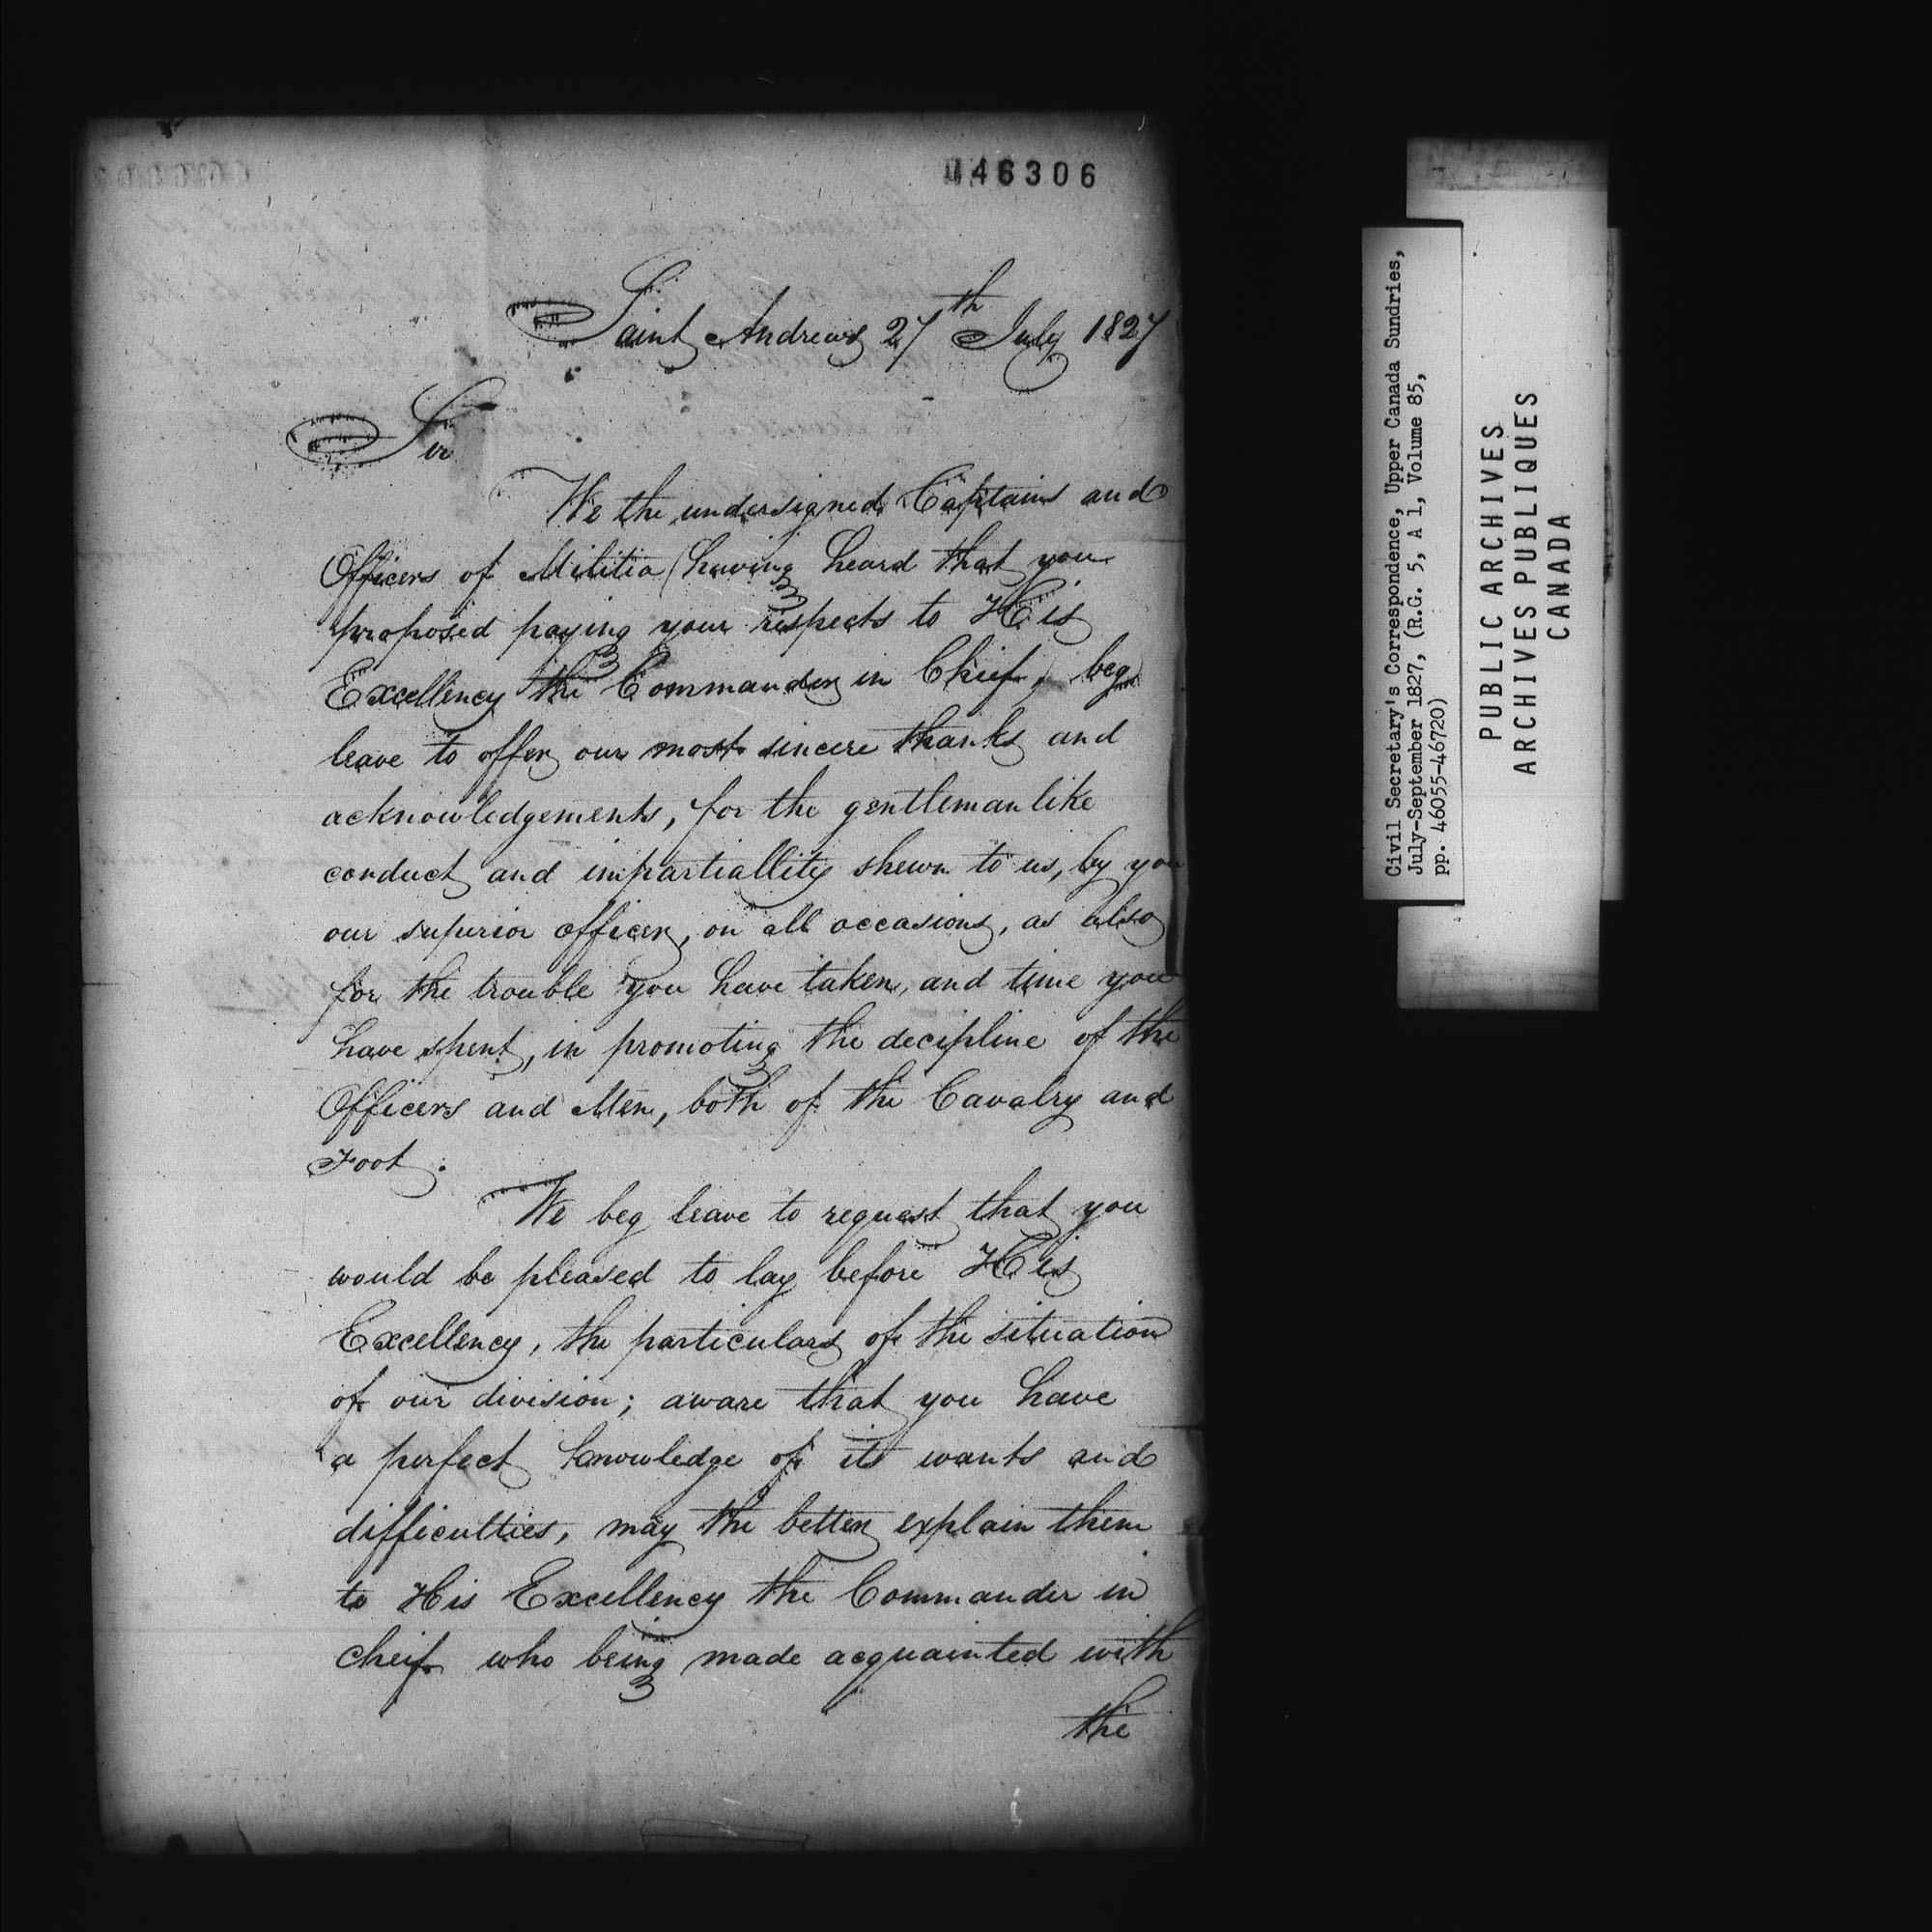 46306
Saint Andrews 27th July 1827
Sir
We the undersigned Captains and
Officers of Militia (having heard that you
proposed paying your respects to His
Excellency the Commander in Chief,) beg
leave to offer our most sincere thanks and
acknowledgements, for the gentlemanlike
conduct and impartiallity shewn to us, by you
our superior officer, on all occasions, as also
for the trouble you have taken, and time you
have spent, in promoting the decipline of the
Officers and Men, both of the Cavalry and
Foot.
We beg leave to request that you
would be pleased to lay before His
Excellency, the particulars of the situation
of our division; aware that you have
a perfect knowledge of its wants and
difficulties, may the better explain them
to His Excellency the Commander in
Cheif who being made acquainted with
the
Civil Secretary's Correspondence, Upper Canada Sundries,
July-September 1827, (R.G. 5, A 1, Volume 85,
pp. 46055-46720)
PUBLIC ARCHIVES
ARCHIVES PUBLIQUES
CANADA